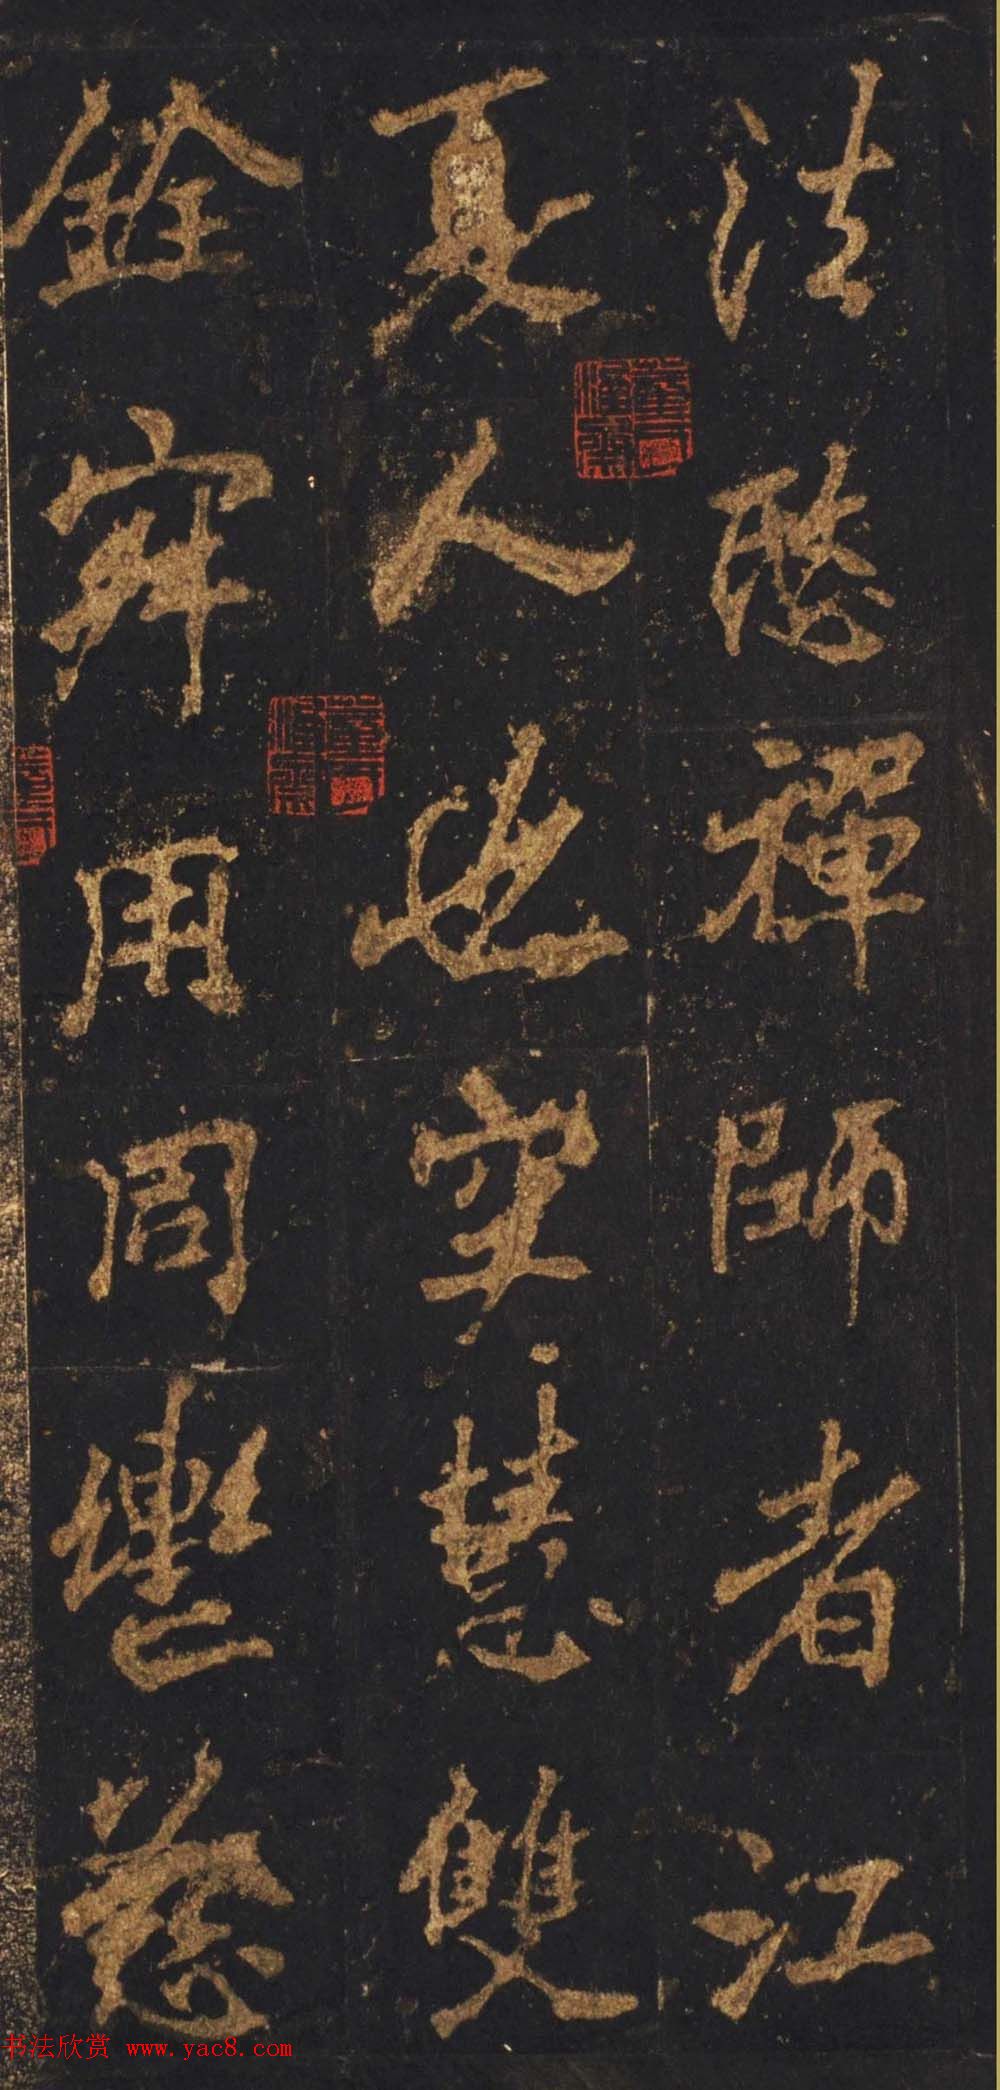 法愍禪師者江
夏人也空慧雙
銓寂用同轡慈
书法欣赏 www.yac8.com